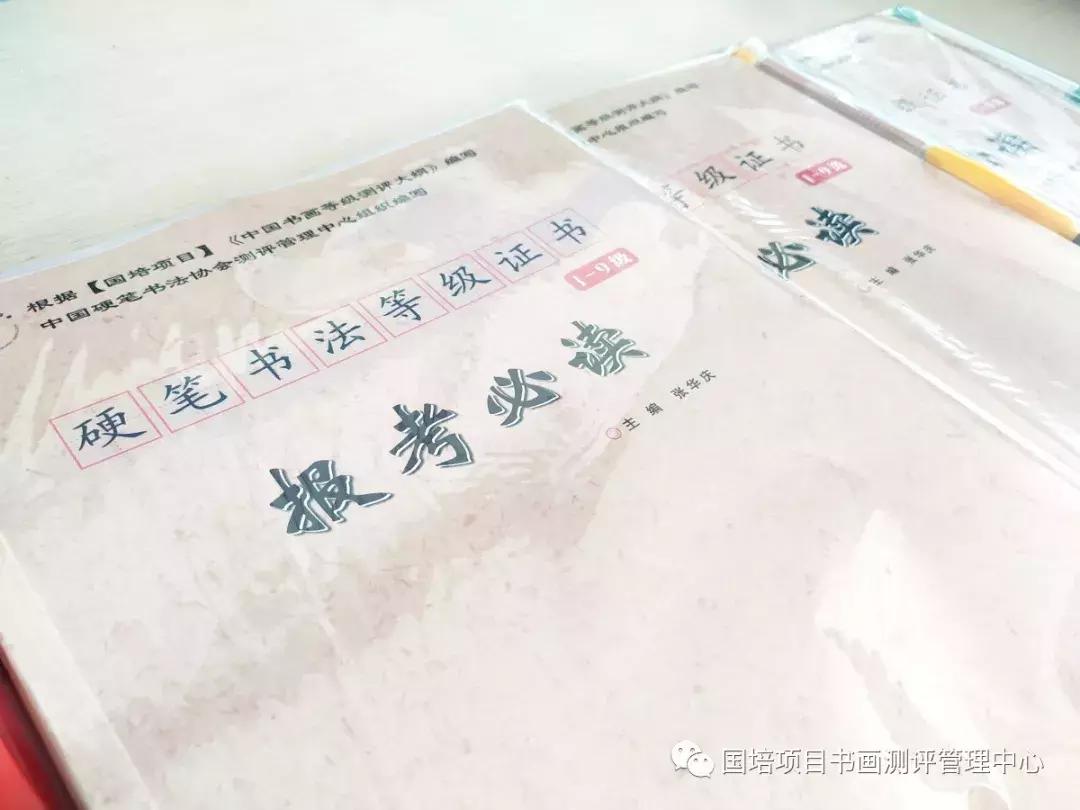 根据【国培项目】《中国书画等级测评大纲》编写
中国硬笔书法协会测评管理中心组织编写
硬笔书法等级证书
1~9级
报考必读
主编 张华庆
等级证书
1~9级
必读
主编 张华庆
国培项目书画测评管理中心